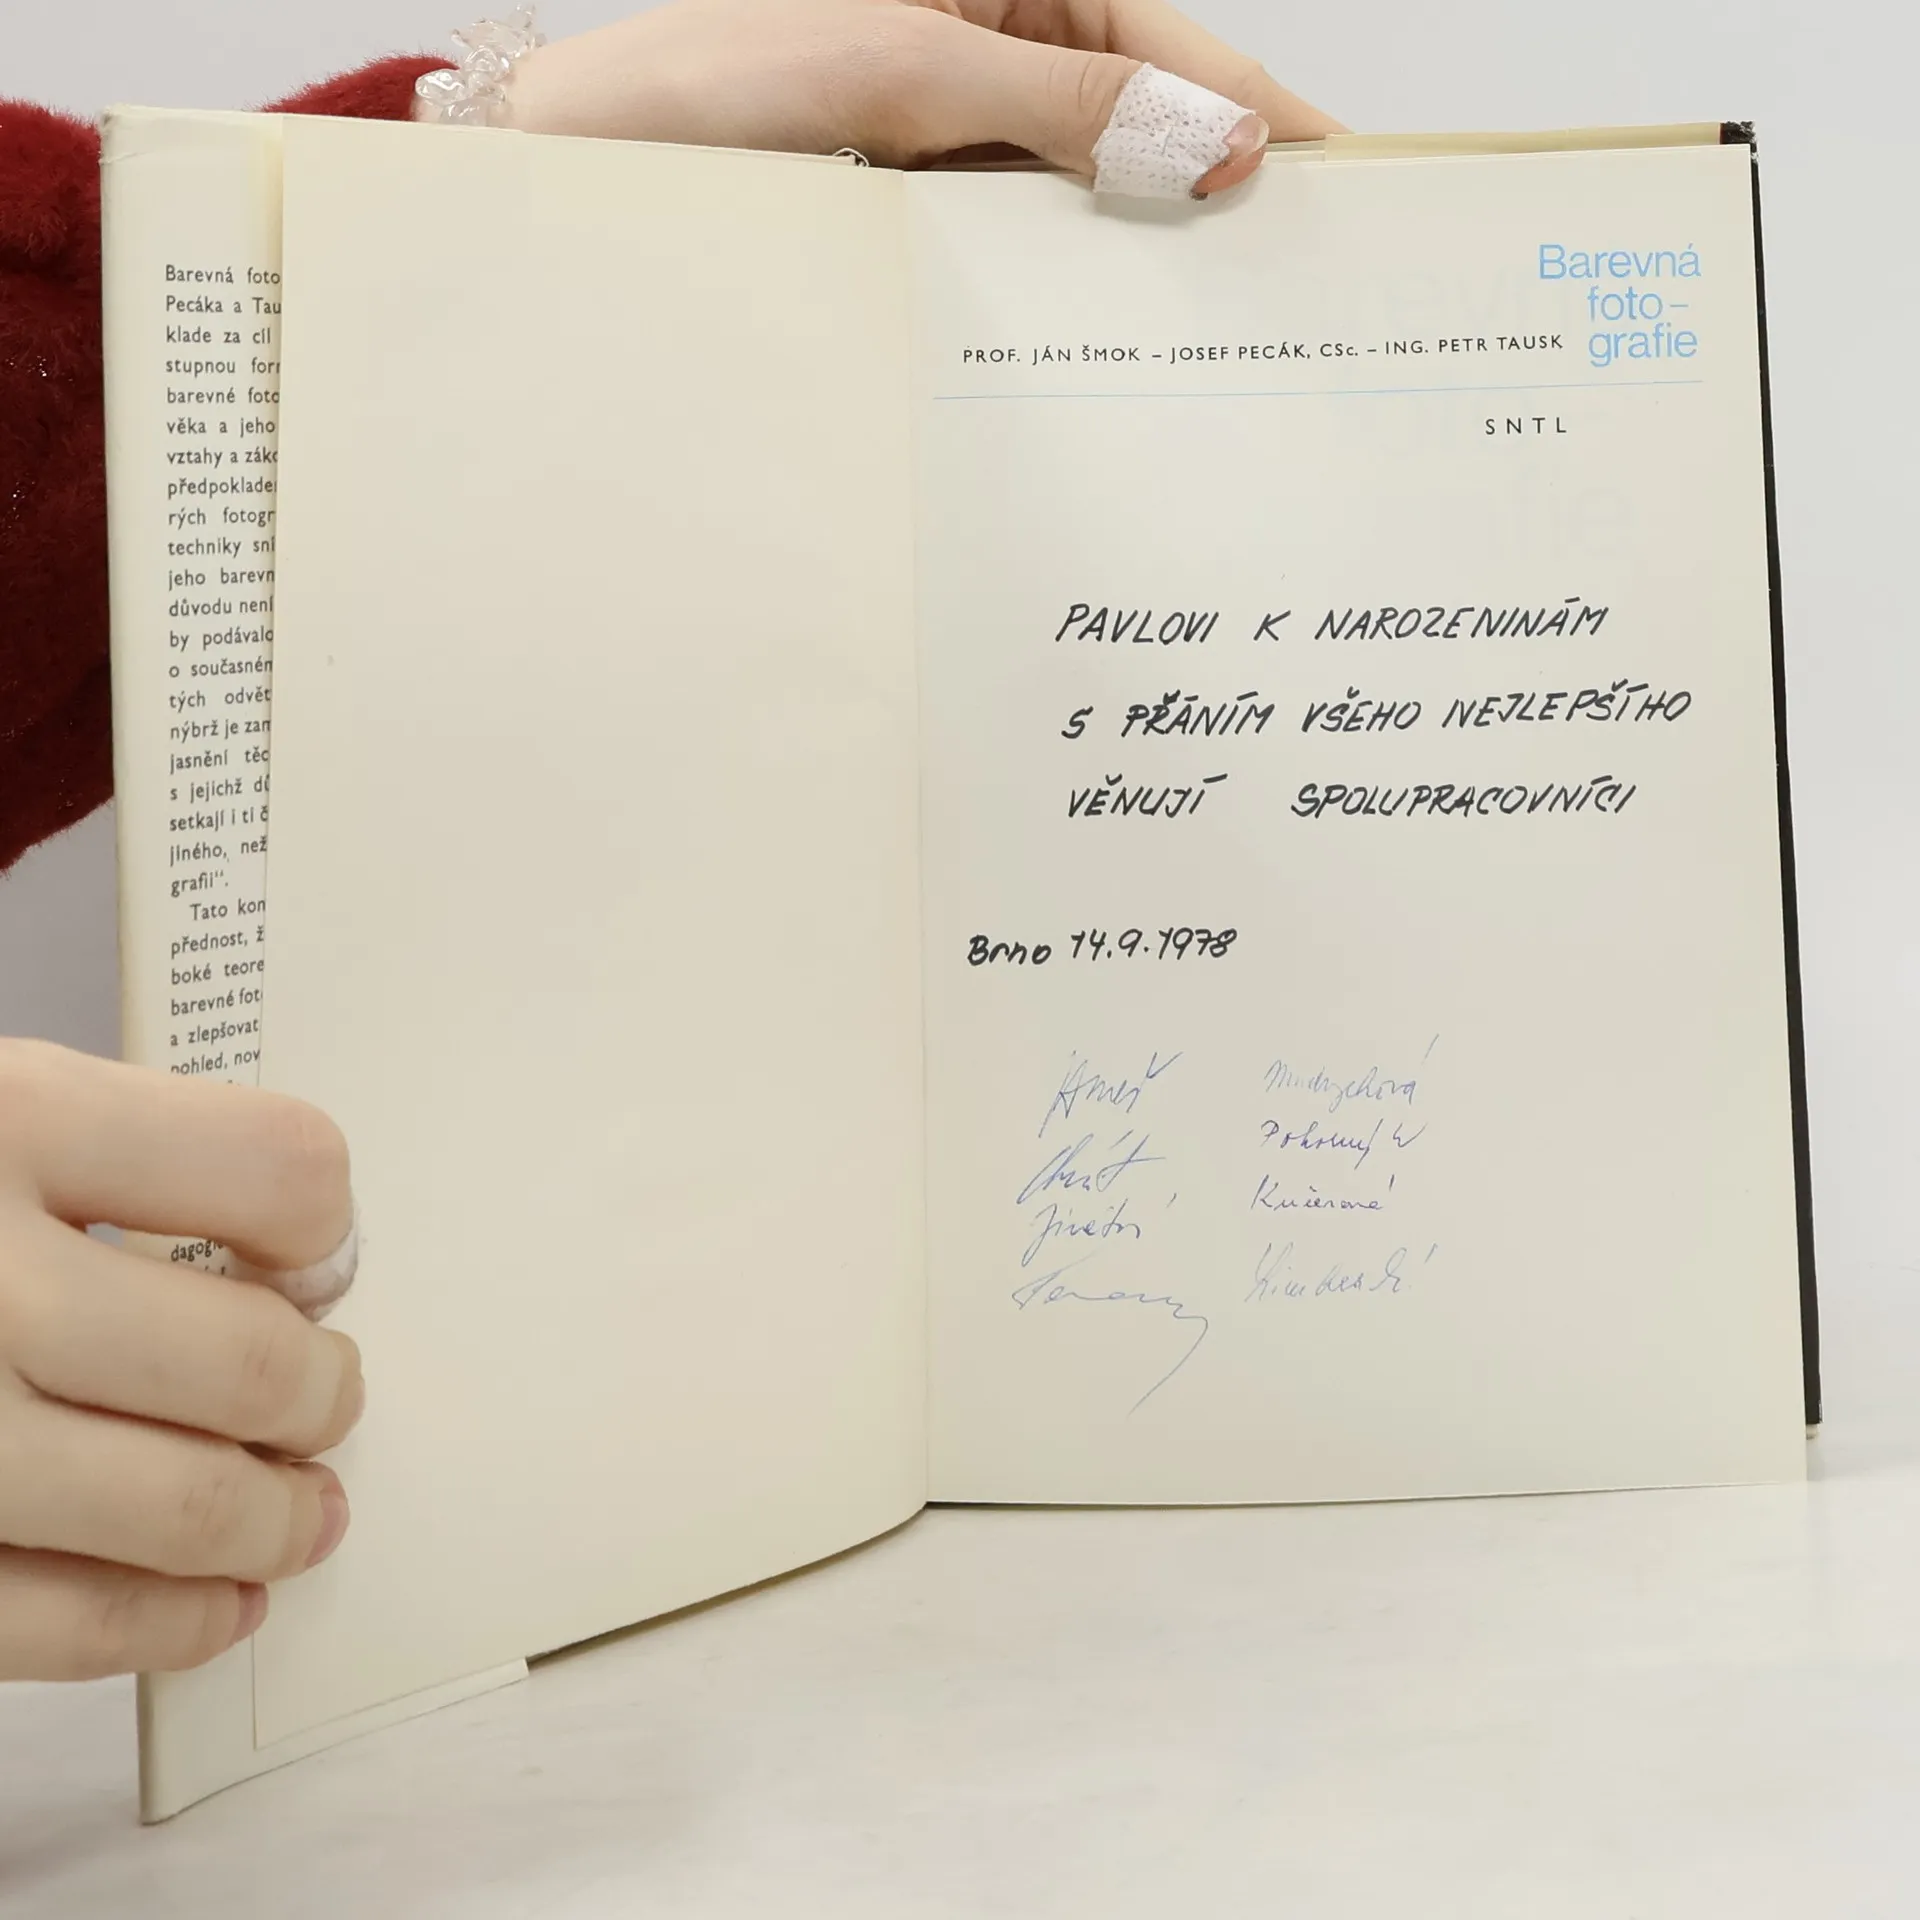 Barevná foto
Pecáka a Tau
klade za cíl
stupnou for
barevné foto
věka a jeho
vztahy a záko
předpoklade
rých fotogr
techniky sní
jeho barevn
důvodu není
by podávalo
o současném
tých odvět
nýbrž je zam
jasnění těc
s jejichž dů
setkají i ti č
jiného, než
grafii“.
Tato kon
přednost, ž
boké teore
barevné fot
a zlepšovat
pohled, nov
dagogi
Barevná
foto–
grafie
PROF. JÁN ŠMOK – JOSEF PECÁK, CSc. – ING. PETR TAUSK
SNTL
PAVLOVI K NAROZENINÁM
S PŘÁNÍM VŠEHO NEJLEPŠÍHO
VĚNUJÍ SPOLUPRACOVNÍCI
Brno 14.9.1978
Pokorný
Kučerová